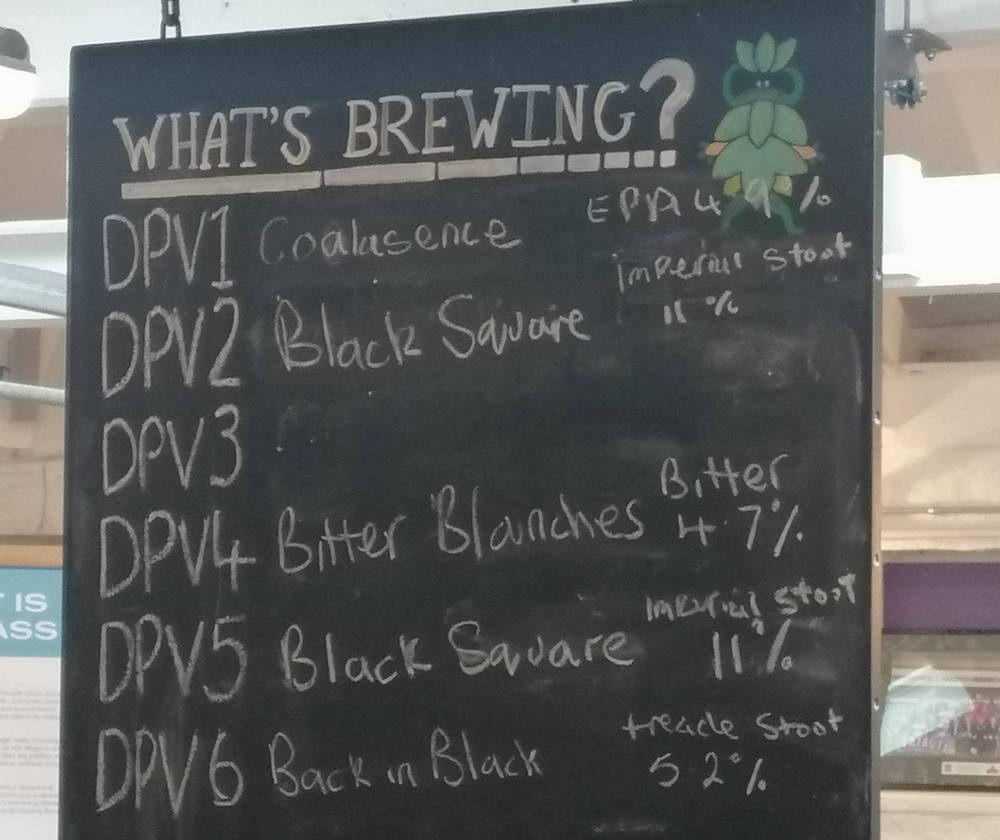 WHAT'S BREWING?
DPV1 Coalasence EPA 4.9%
DPV2 Black Square Imperial Stoot 11%
DPV3
DPV4 Bitter Blanches Bitter 4.7%
DPV5 Black Square Imperial Stoot 11%
DPV6 Back in Black treacle Stoot 5.2%
IS
ASS